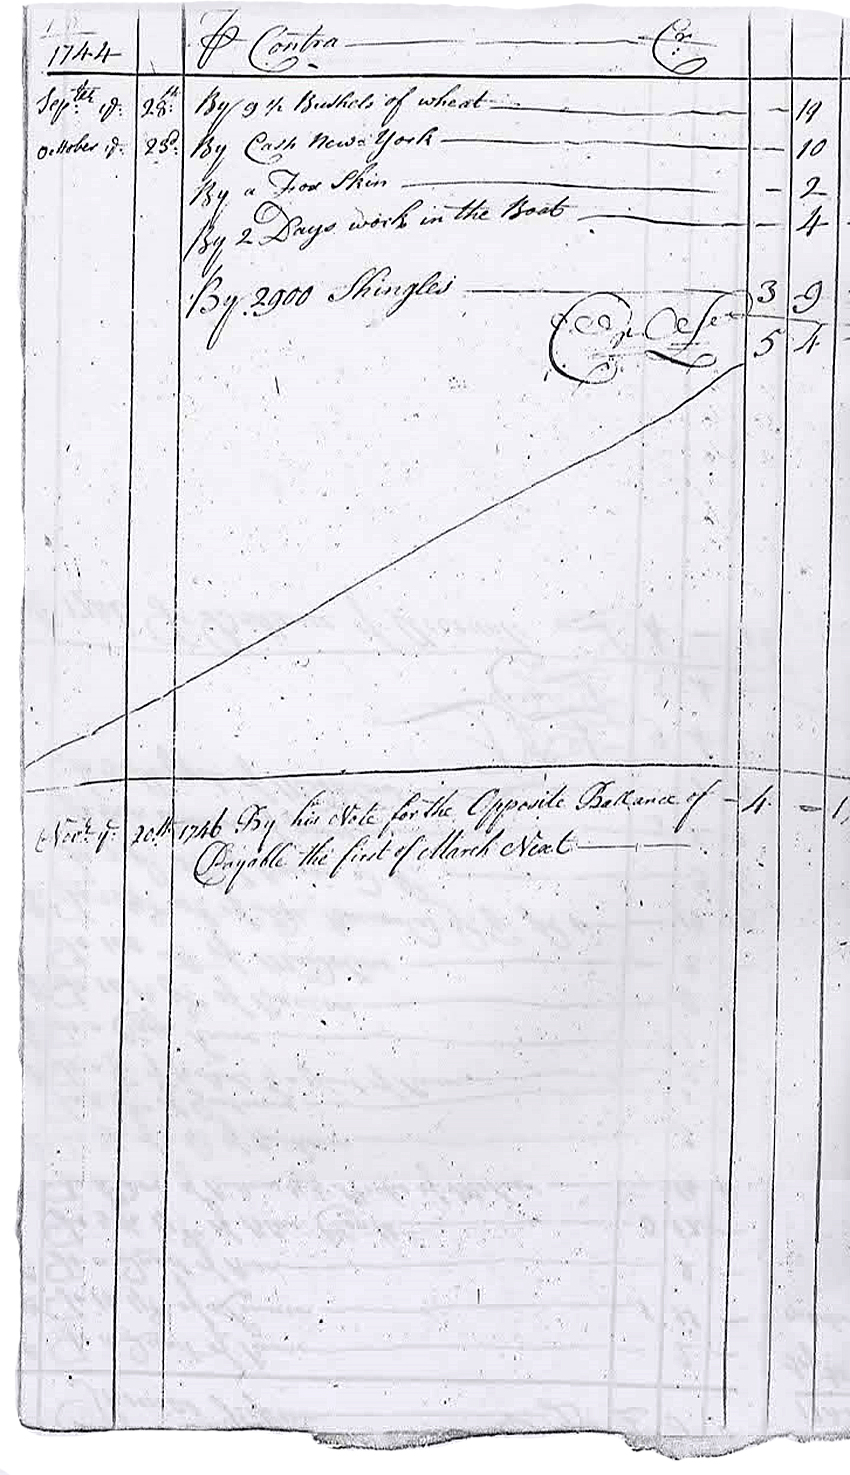 1744 ⅌ Contra Cr.
Septber ye. 28th. By 9 ½ Bushels of wheat - 19
October ye. 23d. By Cash New=York - 10
By a Fox Skin - 2
By 2 Days work in the Boat - 4 -
By 2900 Shingles 3 9
5 4
Novr. ye. 20th. 1746 By his Note for the Opposite Ballance of - 4 - 1
Payable the first of March Next